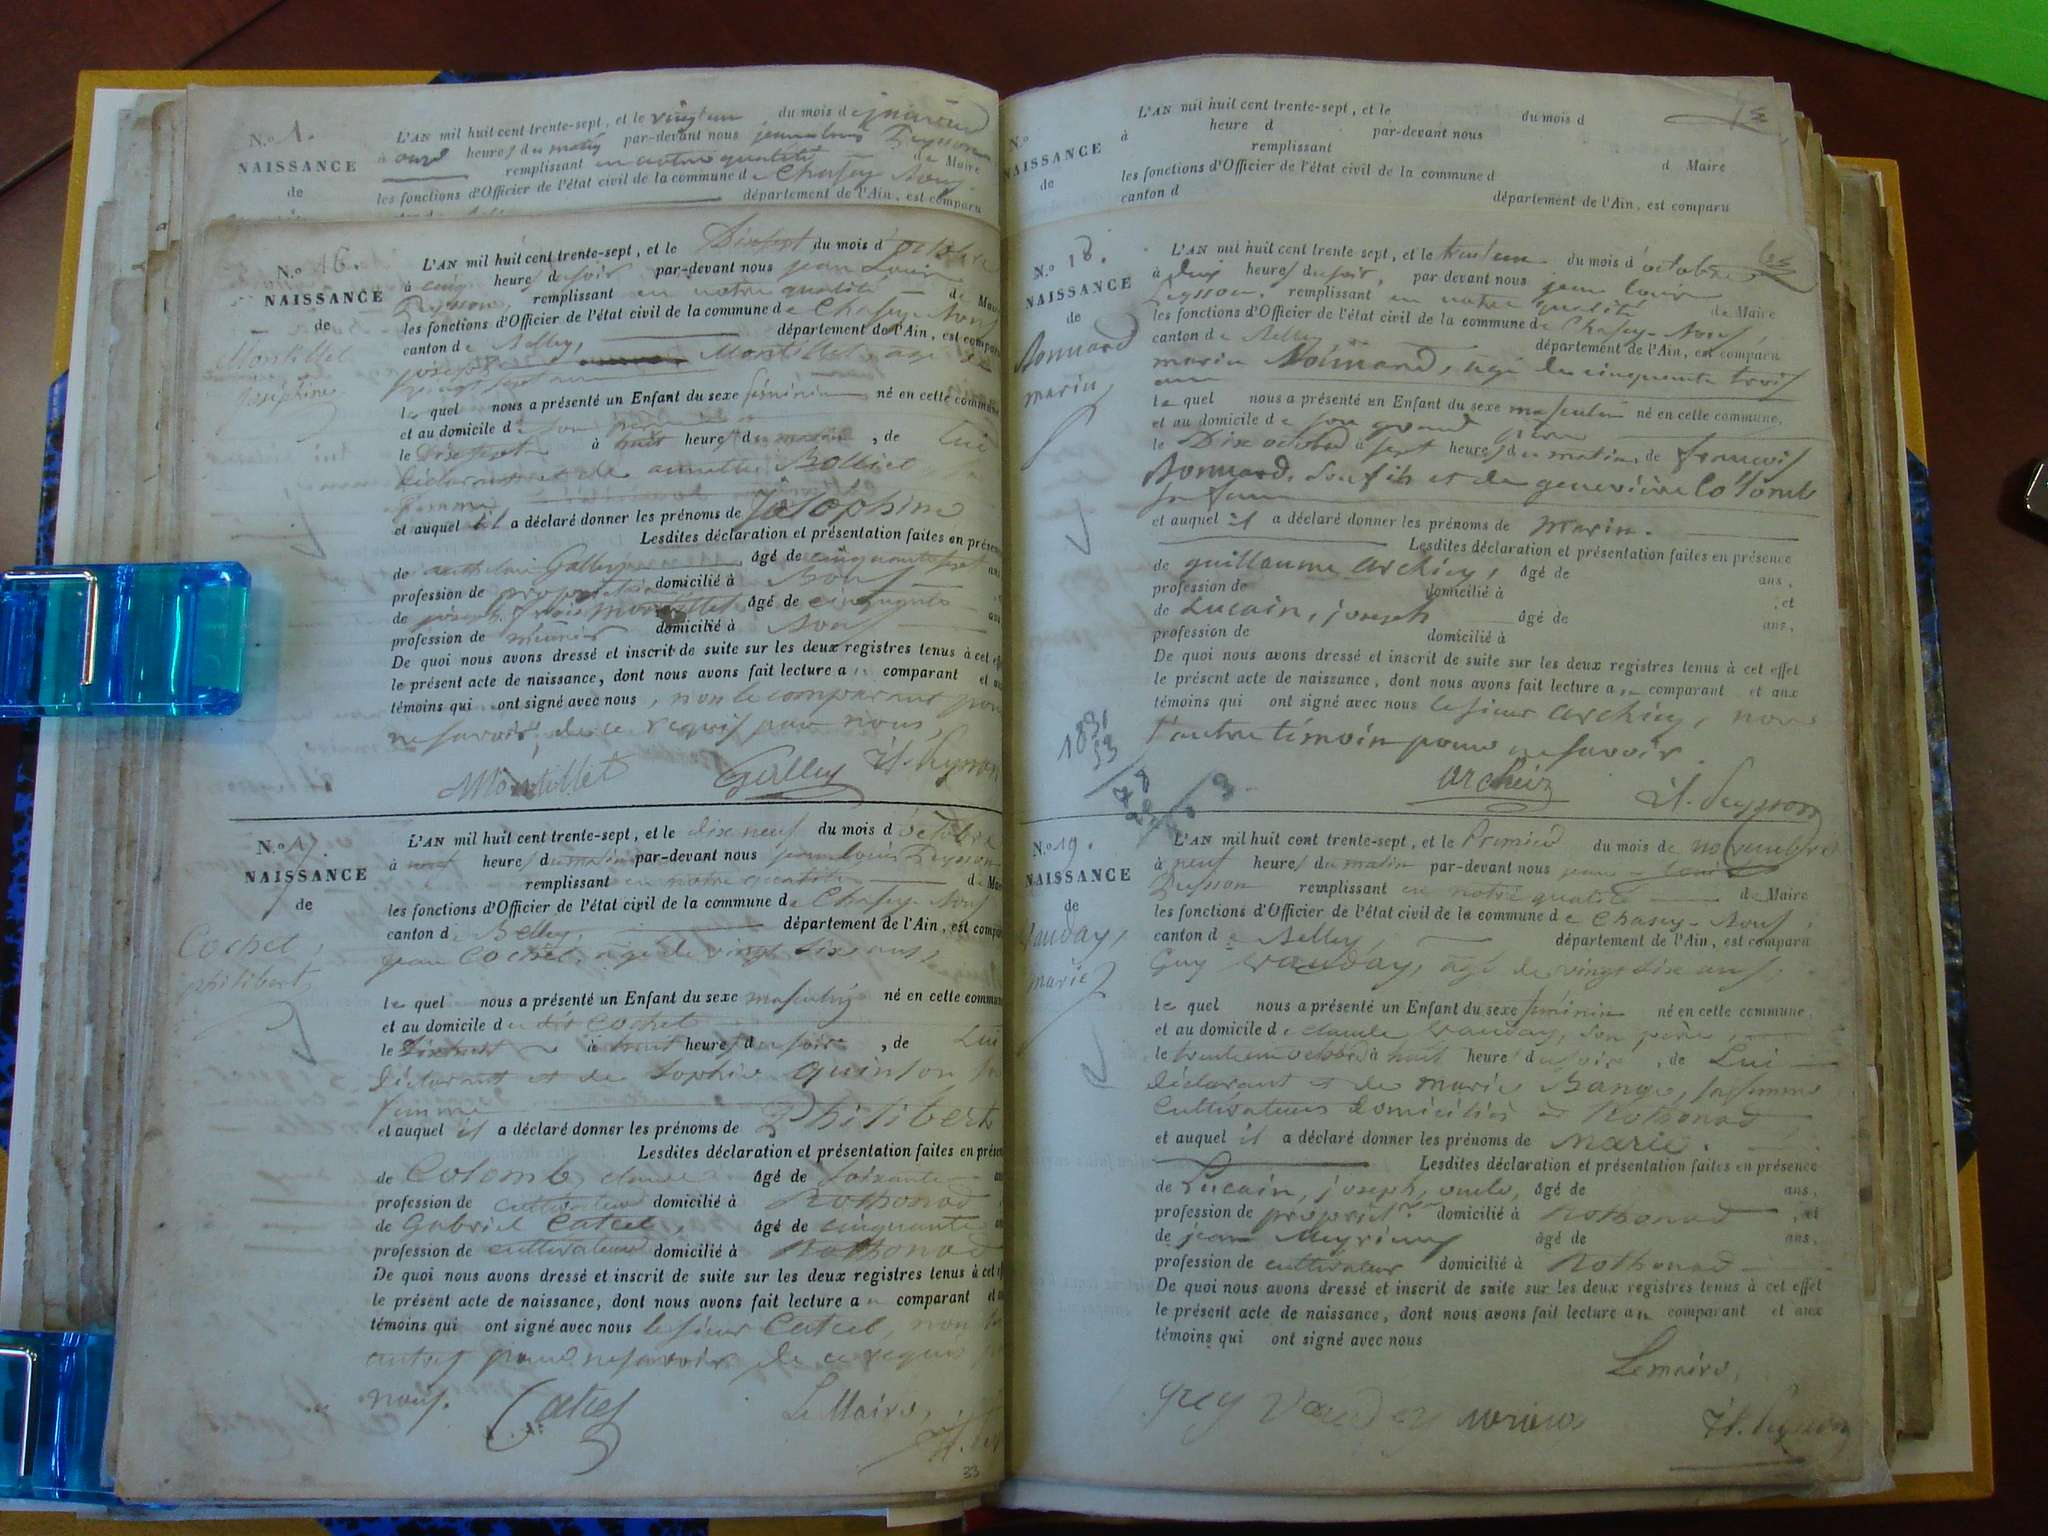 N.o 1.
NAISSANCE
de
L'AN mil huit cent trente-sept, et le vingt un du mois de janvier
à onze heures du matin par-devant nous jean louis Peysson
remplissant en notre qualité de Maire
les fonctions d'Officier de l'état civil de la commune de Chasey-Bons
département de l'Ain, est comparu
N.o 16.
NAISSANCE
de
Montillet
Joséphine
L'AN mil huit cent trente-sept, et le Dix sept du mois d'octobre
à cinq heures du soir par-devant nous jean Louis
Peysson, remplissant en notre qualité de Maire
les fonctions d'Officier de l'état civil de la commune de Chasey-Bons
canton de Belley, département de l'Ain, est comparu
joseph Montillet, agé de
vingt sept ans
le quel nous a présenté un Enfant du sexe féminin né en cette commune
et au domicile de son père
le Dix sept à huit heures du matin, de Lui
déclarant et de annette Bolliet sa
femme
et auquel il a déclaré donner les prénoms de joséphine
Lesdites déclaration et présentation faites en présence
de anthelme Galley âgé de cinquante sept ans
profession de propriétaire domicilié à Bons
de joseph Montillet âgé de cinquante ans
profession de meûnier domicilié à Bons
De quoi nous avons dressé et inscrit de suite sur les deux registres tenus à cet effet
le présent acte de naissance, dont nous avons fait lecture au comparant et aux
témoins qui ont signé avec nous, non le comparant pour
ne savoir, de ce requis par nous,
Montillet Galley J.L. Peysson
N.o 17.
NAISSANCE
de
Cochet,
philibert,
L'AN mil huit cent trente-sept, et le dix neuf du mois d'octobre
à neuf heures du matin par-devant nous jean louis Peysson
remplissant en notre qualité de Maire
les fonctions d'Officier de l'état civil de la commune de Chasey-Bons
canton de Belley, département de l'Ain, est comparu
jean Cochet, agé de vingt six ans,
le quel nous a présenté un Enfant du sexe masculin né en cette commune
et au domicile du dit Cochet
le Dix huit à huit heures du soir, de Lui
déclarant et de Sophie Quinson sa
femme
et auquel il a déclaré donner les prénoms de Philibert
Lesdites déclaration et présentation faites en présence
de Colomb, claude âgé de soixante
profession de cultivateur domicilié à Rothonod
de Gabriel Catcel, âgé de cinquante
profession de cultivateur domicilié à Rothonod
De quoi nous avons dressé et inscrit de suite sur les deux registres tenus à cet effet
le présent acte de naissance, dont nous avons fait lecture au comparant et aux
témoins qui ont signé avec nous le sieur Catcel, non les
autres pour ne savoir de ce requis par
nous.
Catcel Le Maire,
33
N.o
NAISSANCE
de
L'AN mil huit cent trente-sept, et le du mois d
à heure d par-devant nous
remplissant d Maire
les fonctions d'Officier de l'état civil de la commune d
canton d département de l'Ain, est comparu
N.o 18.
NAISSANCE
de
Bonnard
marin,
L'AN mil huit cent trente sept, et le trente un du mois d'octobre
à dix heures du soir, par devant nous jean louis
Peysson, remplissant en notre qualité de Maire
les fonctions d'Officier de l'état civil de la commune de Chasey-Bons,
canton de Belley, département de l'Ain, est comparu
marin Bonnard, agé de cinquante trois
ans
le quel nous a présenté un Enfant du sexe masculin né en cette commune,
et au domicile de son grand père
le Dix octobre à sept heures du matin, de françois
Bonnard, son fils et de geneviève Colomb
sa femme
et auquel il a déclaré donner les prénoms de Marin.
Lesdites déclaration et présentation faites en présence
de guillaume archiey, âgé de ans,
profession de domicilié à , et
de Lucain, joseph âgé de ans,
profession de domicilié à
De quoi nous avons dressé et inscrit de suite sur les deux registres tenus à cet effet
le présent acte de naissance, dont nous avons fait lecture au comparant et aux
témoins qui ont signé avec nous le sieur archiey, non
l'autre témoin pour ne savoir.
J.L. Peysson
N.o 19.
NAISSANCE
de
Vauday,
marie
L'AN mil huit cent trente-sept, et le Premier du mois de novembre
à neuf heures du matin par-devant nous jean louis
Peysson remplissant en notre qualité de Maire
les fonctions d'Officier de l'état civil de la commune de Chasey-Bons,
canton de Belley, département de l'Ain, est comparu
Guy Vauday, agé de vingt six ans
le quel nous a présenté un Enfant du sexe féminin né en cette commune,
et au domicile de claude Vauday, son père,
le trente un octobre à huit heures du soir, de Lui
déclarant et de marie Bange, sa femme
cultivateurs domiciliés à Rothonod
et auquel il a déclaré donner les prénoms de Marie.
Lesdites déclaration et présentation faites en présence
de Lucain, joseph, âgé de ans,
profession de propriét.re domicilié à Rothonod, et
de jean Meyrieux âgé de ans,
profession de cultivateur domicilié à Rothonod
De quoi nous avons dressé et inscrit de suite sur les deux registres tenus à cet effet
le présent acte de naissance, dont nous avons fait lecture au comparant et aux
témoins qui ont signé avec nous
Le maire,
guy Vauday J.L. Peysson